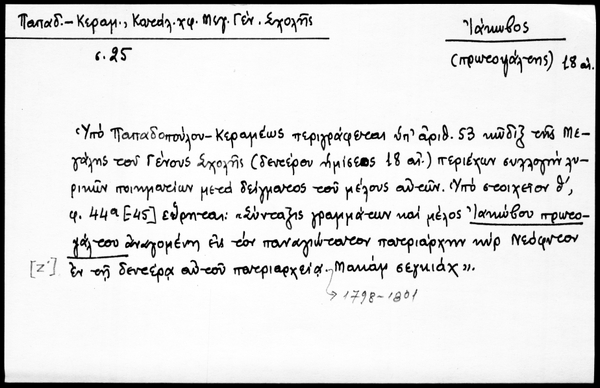 Παπαδ.-Κεραμ., Κατάλ. χφ. Μεγ. Γέν. Σχολῆς
σ. 25
Ἰάκωβος
(πρωτοψάλτης) 18 αἰ.
Ὑπὸ Παπαδοπούλου-Κεραμέως περιγράφεται ὑπ' ἀριθ. 53 κῶδιξ τῆς Με-
γάλης τοῦ Γένους Σχολῆς (δευτέρου ἡμίσεος 18 αἰ.) περιέχων συλλογὴν λυ-
ρικῶν ποιηματίων μετὰ δείγματος τοῦ μέλους αὐτῶν. Ὑπὸ στοιχεῖον θ',
φ. 44α [-45] εὕρηται: «Σύνταξις γραμμάτων καὶ μέλος Ἰακώβου πρωτο-
ψάλτου ἀναγομένη εἰς τὸν παναγιώτατον πατριάρχην κὺρ Νεόφυτον
[ζ'] ἐν τῇ δευτέρᾳ αὐτοῦ πατριαρχείᾳ. Μακὰμ σεγκιάχ».
→ 1798-1801